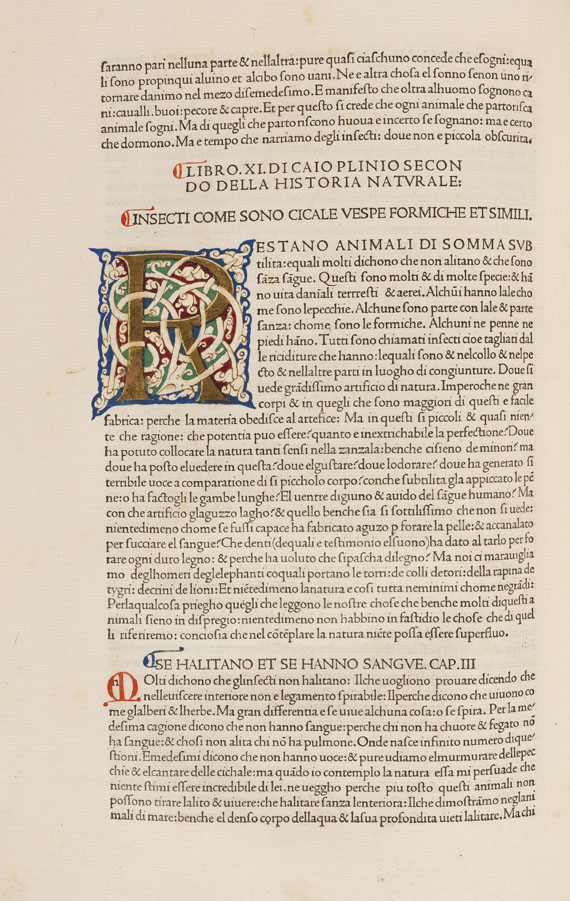 saranno pari nelluna parte & nellaltra: pure quasi ciaschuno concede che esogni: equa
li sono propinqui aluino et alcibo sono uani. Ne e altra chosa el sonno senon uno ri/
tornare danimo nel mezo disemedesimo. E manifesto che oltra alhuomo sognono ca
ni: caualli. buoi: pecore & capre. Et per questo si crede che ogni animale che partorisca
animale sogni. Ma di quegli che partoriscono huoua e incerto se sognano: ma e certo
che dormono. Ma e tempo che narriamo degli insecti: doue non e piccola obscurita.
LIBRO. XI. DI CAIO PLINIO SECON
DO DELLA HISTORIA NATVRALE:
INSECTI COME SONO CICALE VESPE FORMICHE ET SIMILI.
RESTANO ANIMALI DI SOMMA SVB
tilita: equali molti dichono che non alitano & che sono
sãza sãgue. Questi sono molti & di molte specie: & hã
no uita daniali terrresti & aerei. Alchũi hanno lale cho
me sono lepecchie. Alchune sono parte con lale & parte
sanza: chome sono le formiche. Alchuni ne penne ne
piedi hãno. Tutti sono chiamati insecti cioe tagliati dal
le riciditure che hanno: lequali sono & nelcollo & nelpe
cto & nellaltre parti in luogho di congiunture. Doue si
uede grãdissimo artificio di natura. Imperoche ne gran
corpi & in quegli che sono maggiori di questi e facile
fabrica: perche la materia obedisce al artefice: Ma in questi si piccoli & quasi nien/
te che ragione: che potentia puo essere? quanto e inextrichabile la perfectione? Doue
ha potuto collocare la natura tanti sensi nella zanzala: benche cisieno de minori? ma
doue ha posto eluedere in questa? doue elgustare? doue lodorare? doue ha generato si
terribile uoce a comparatione di si piccholo corpo? conche subtilita gla appiccato le pẽ
ne: o ha factogli le gambe lunghe? El uentre digiuno & auido del sãgue humano? Ma
con che artificio glaguzzo lagho? & quello benche sia si sottilissimo che non si uede:
nientedimeno chome se fussi capace ha fabricato aguzo p forare la pelle: & accanalato
per succiare el sangue? Che denti (dequali e testimonio elsuono) ha dato al tarlo per fo
rare ogni duro legno: & perche ha uoluto che sipascha dilegno? Ma noi ci marauiglia
mo deglhomeri deglelephanti coquali portano le torri: de colli detori: della rapina de
tygri: decrini de lioni: Et niẽtedimeno lanatura e cosi tutta neminimi chome negrãdi:
Perlaqualcosa priegho quegli che leggono le nostre chose che benche molti diquesti a
nimali sieno in dispregio: nientedimeno non habbino in fastidio le chose che di quel
li riferiremo: conciosia che nel cõtẽplare la natura niẽte possa essere superfluo.
SE HALITANO ET SE HANNO SANGVE. CAP. III
MOlti dichono che glinsecti non halitano: Ilche uogliono prouare dicendo che
nelleuiscere interiore non e legamento spirabile: Ilperche dicono che uiuono co
me glalberi & lherbe. Ma gran differentia e se uiue alchuna cosa: o se spira. Per la me/
desima cagione dicono che non hanno sangue: perche chi non ha chuore & fegato nõ
ha sangue: & chosi non alita chi nõ ha pulmone. Onde nasce infinito numero dique/
stioni. Emedesimi dicono che non hanno uoce: & pure udiamo elmurmurare dellepec
chie & elcantare delle cichale: ma quãdo io contemplo la natura essa mi persuade che
niente stimi essere incredibile di lei. ne uegho perche piu tosto questi animali non
possono tirare lalito & uiuere: che halitare sanza lenteriora: Ilche dimostrãmo neglani
mali di mare: benche el denso corpo dellaqua & lasua profondita uieti lalitare. Ma chi